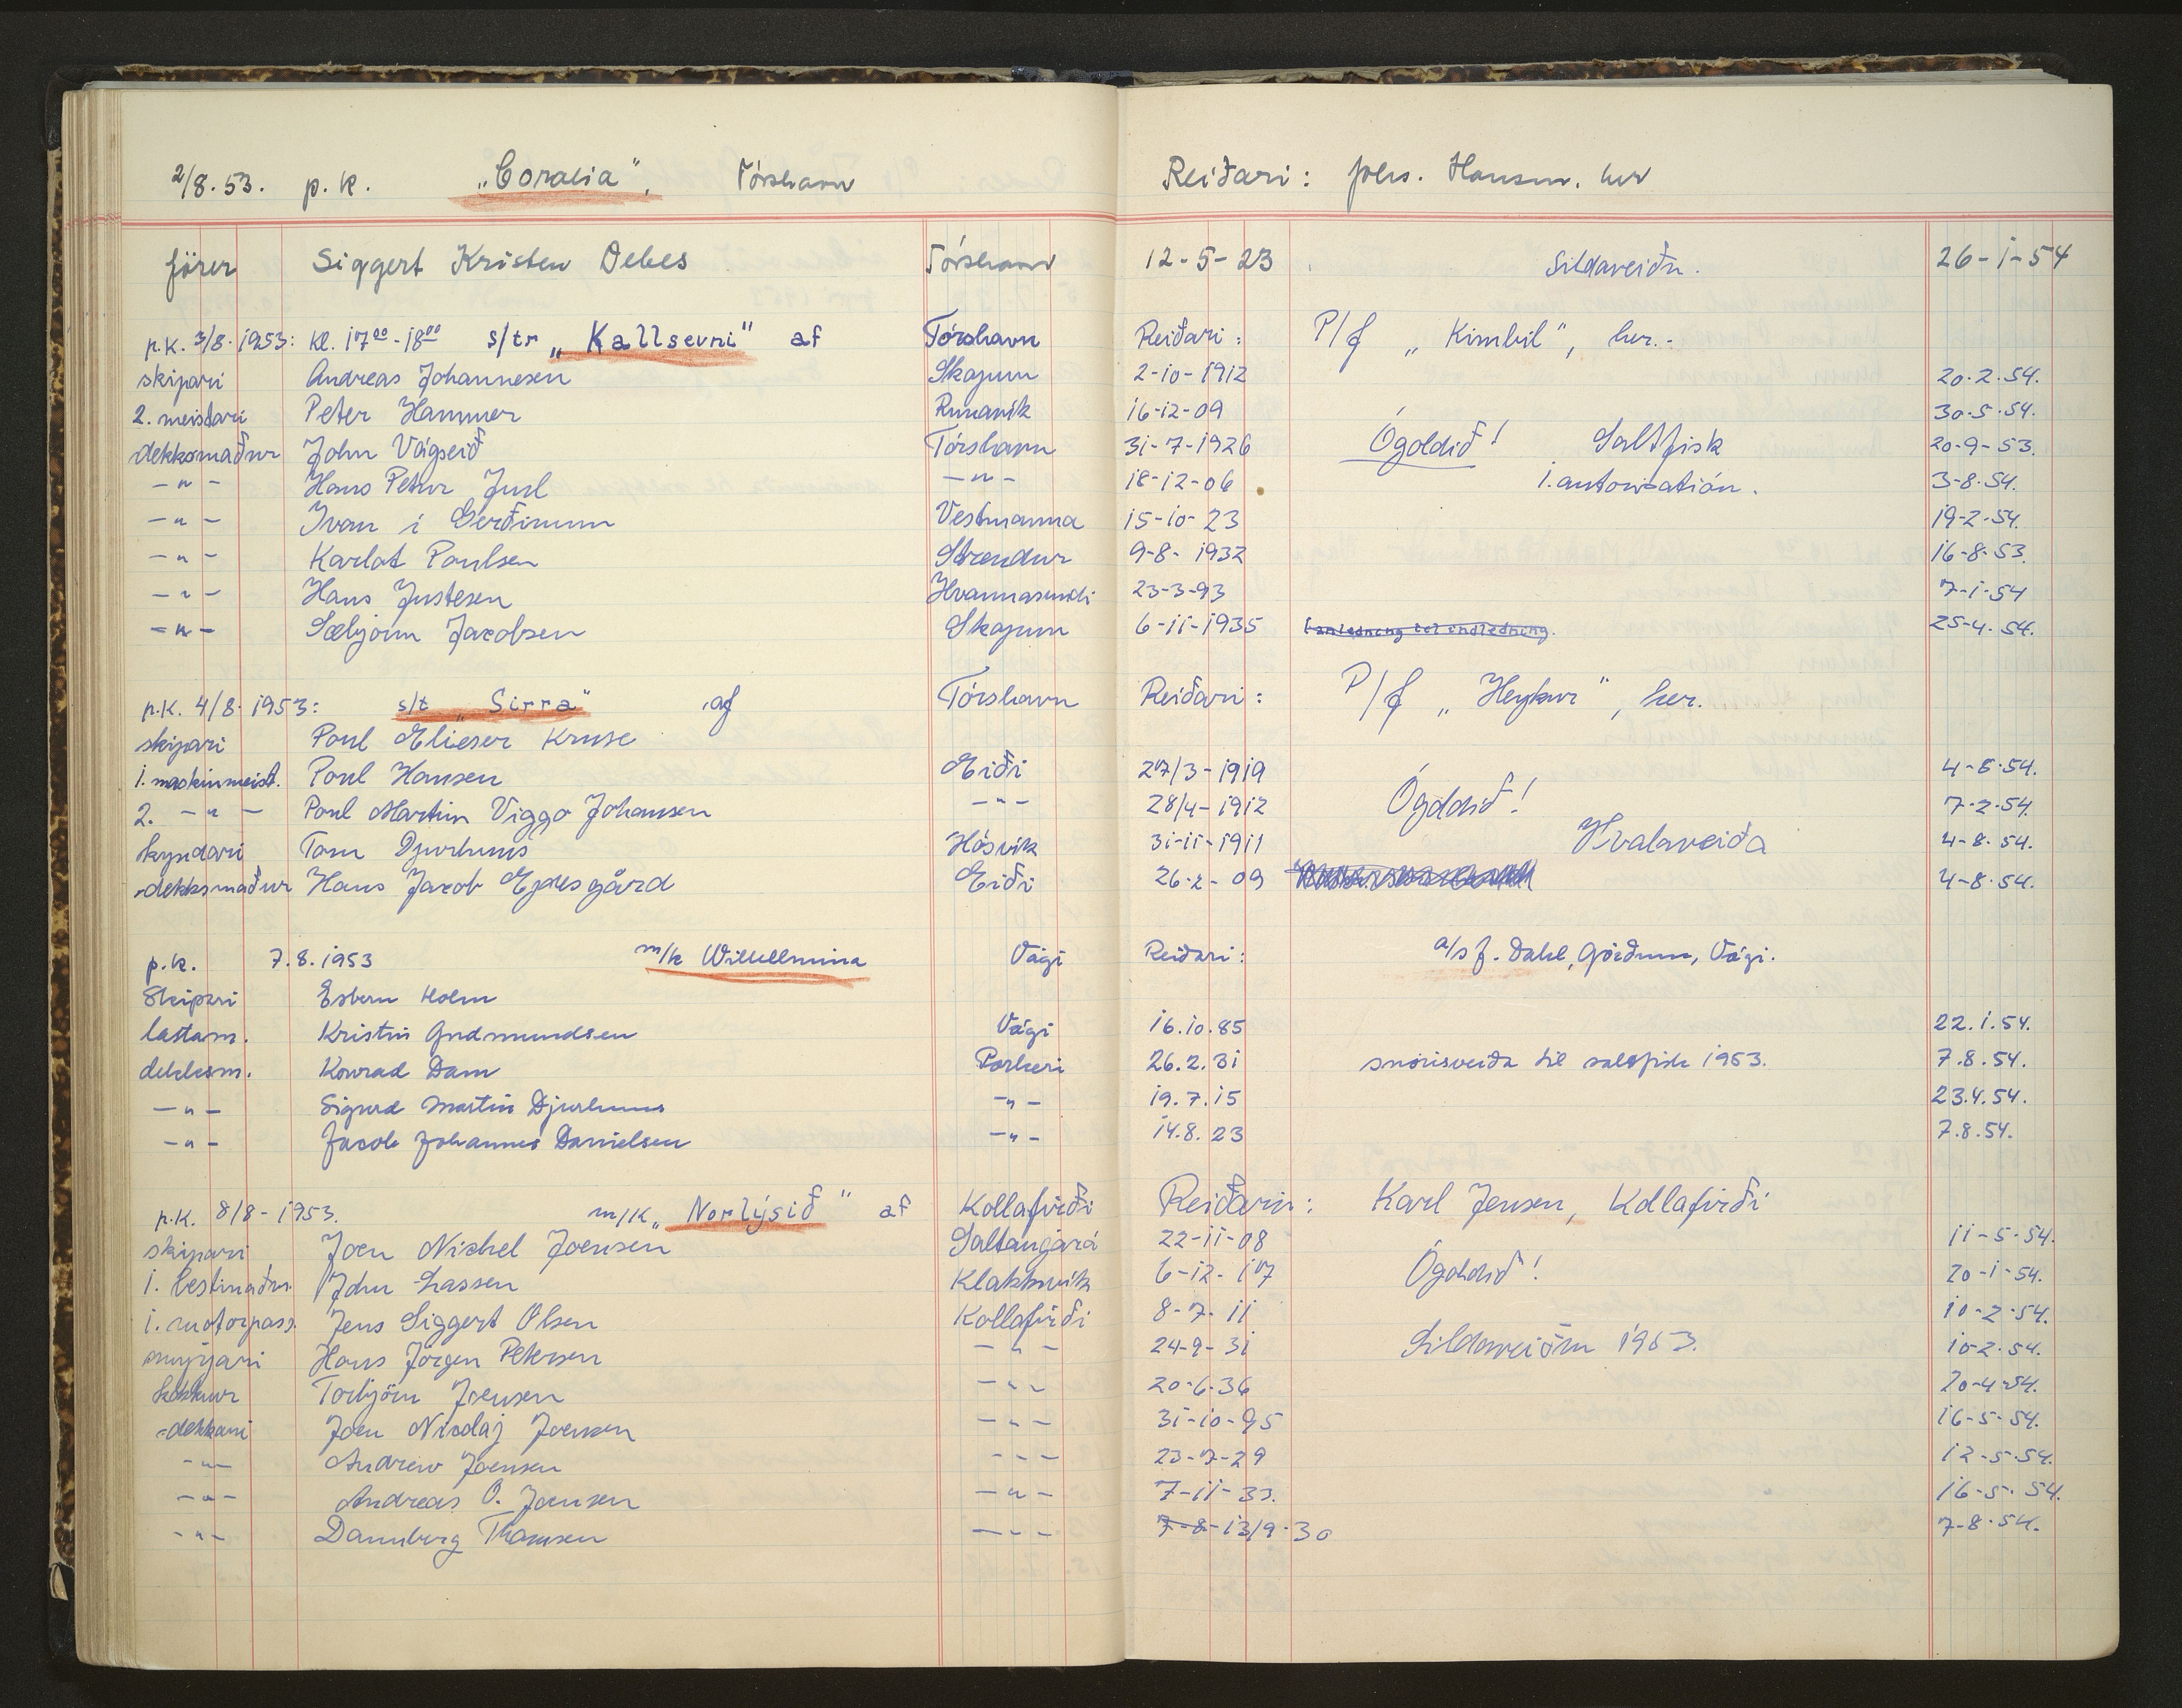 2/8.53. p.k. „Coralia“, Tórshavn Reiðari: Johs. Hansen. her
förer Siggert Kristen Debes Tórshavn 12-5-23 Sildaveiðu. 26-1-54
p.k. 3/8. 1953: kl. 17⁰⁰-18⁰⁰ s/tr „Kallsevni“ af Tórshavn Reiðari: P/f „Kimbil“, her.-
skipari Andreas Johannesen Skopun 2-10-1912 20.2.54.
2. meistari Peter Hammer Runavík 16-12-09 30.5.54.
dekksmaður John Vágseið Tórshavn 31-7-1926 Ógoldið! Saltfisk 20-9-53.
-"- Hans Petur Juul -"- 18-12-06 3-8.54.
-"- Ivan í Gerðinum Vestmanna 15-10-23 19-2-54.
-"- Karlot Poulsen Strendur 9-8-1932 16-8-53.
-"- Hans Justesen Hvannasundi 23-3-93 7-1-54
-"- Sæbjørn Jacobsen Skopun 6-11-1935 25-4.54.
p.k. 4/8. 1953: s/t „Sirra“ af Tórshavn Reiðari: P/f „Heykur“, her.
skipari Poul Elieser Kruse
1. maskinmeist. Poul Hansen Eiði 27/3-1919 4-8.54.
2. -"- Poul Martin Viggo Johansen -"- 28/4-1912 Ógoldið! 7-2.54.
kyndari Tom Djurhuus Hósvík 31-11-1911 Hvalaveiða 4-8.54.
dekksmaður Hans Jacob Ejdesgård Eiði 26-2-09 4-8.54.
p.k. 7.8.1953 m/k Wilhelmina Vági Reiðari: a/s J. Dahl, Gørðum, Vági.
Skipari Esbern Holm
lastam. Kristin Gudmundsen Vági 16.10.85 22.1.54.
dekksm. Konrad Dam Porkeri 26.2.31 snørisveiða til saltfisk 1953. 7.8.54.
-"- Sigurd Martin Djurhuus -"- 19.7.15 23.4.54.
-"- Jacob Johannes Danielsen -"- 14.8.23 7.8.54.
p.k. 8/8-1953. m/k „Norlýsið“ af Kollafirði Reiðarin: Karl Jensen, Kollafirði
skipari Joen Michel Joensen Saltangará 22-11-08 11-5-54.
1. bestmaður John Lassen Klakksvík 6-12-17 Ógoldið! 20-1-54.
1. motorpass. Jens Siggert Olsen Kollafirði 8-7-11 10-2-54.
Hans Jørgen Petersen -"- 24-9-31 Sildaveiðu 1953. 10-2.54.
kokkur Torbjörn Joensen -"- 20-6-36 20-4-54.
dekkari Joen Nicolaj Joensen -"- 31-10-95 16-5-54.
-"- Andrew Joensen -"- 23-7-29 12-5-54.
-"- Andreas O. Joensen -"- 7-11-33. 16-5-54.
-"- Dannberg Thomsen -"- 7-8-13/9-30 7-8.54.